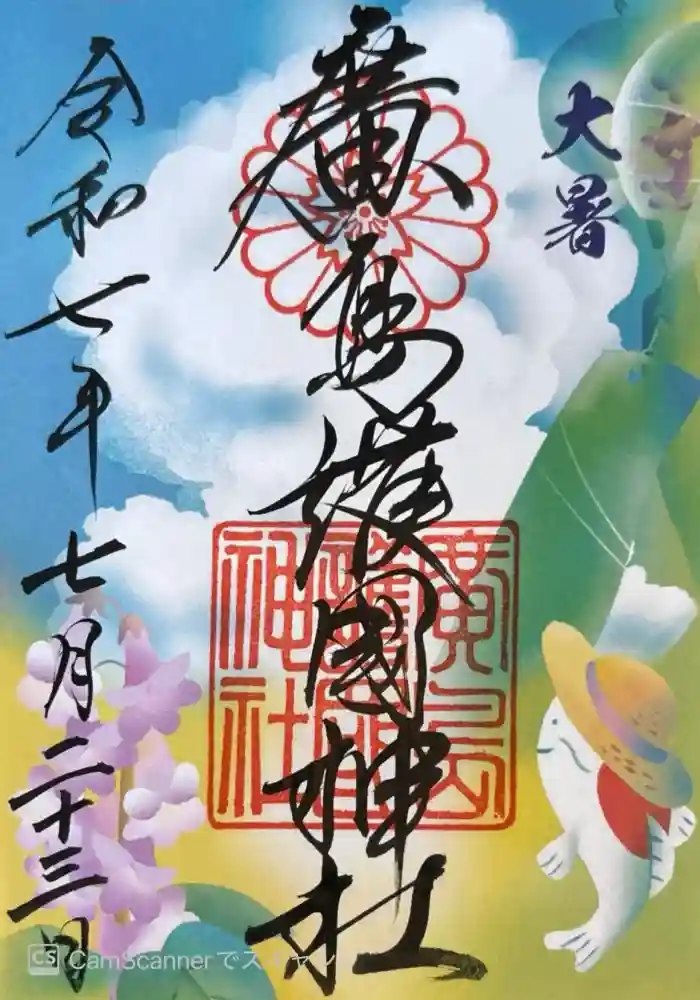 大暑
廣島護國神社
廣島
護國
神社
令和七年七月二十三日
CS CamScannerでスキャン